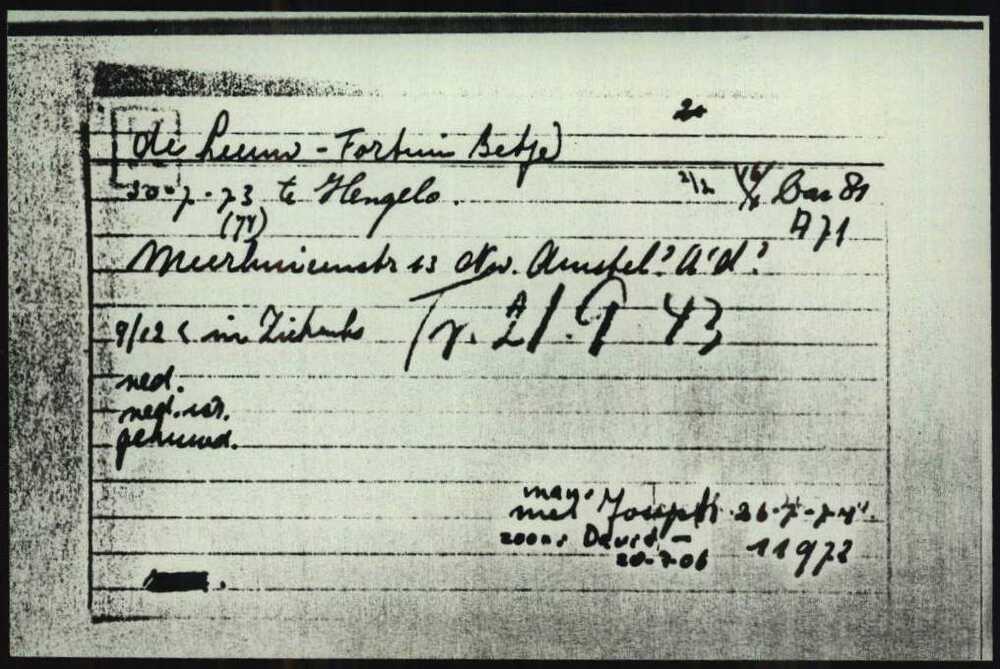 de Leeuw - Fortuin Betje
30-7-73 te Hengelo. 2/2 Bar 81
A 71
Meerhuizenstr 13 Nw. Amstel? A'd?
9/12 in Ziekenhs Tr. 21.9 43
ned.
ned. isr.
gehuwd.
man:
met Joseph 26-7-74
zoon: David - 11972
20-7-06